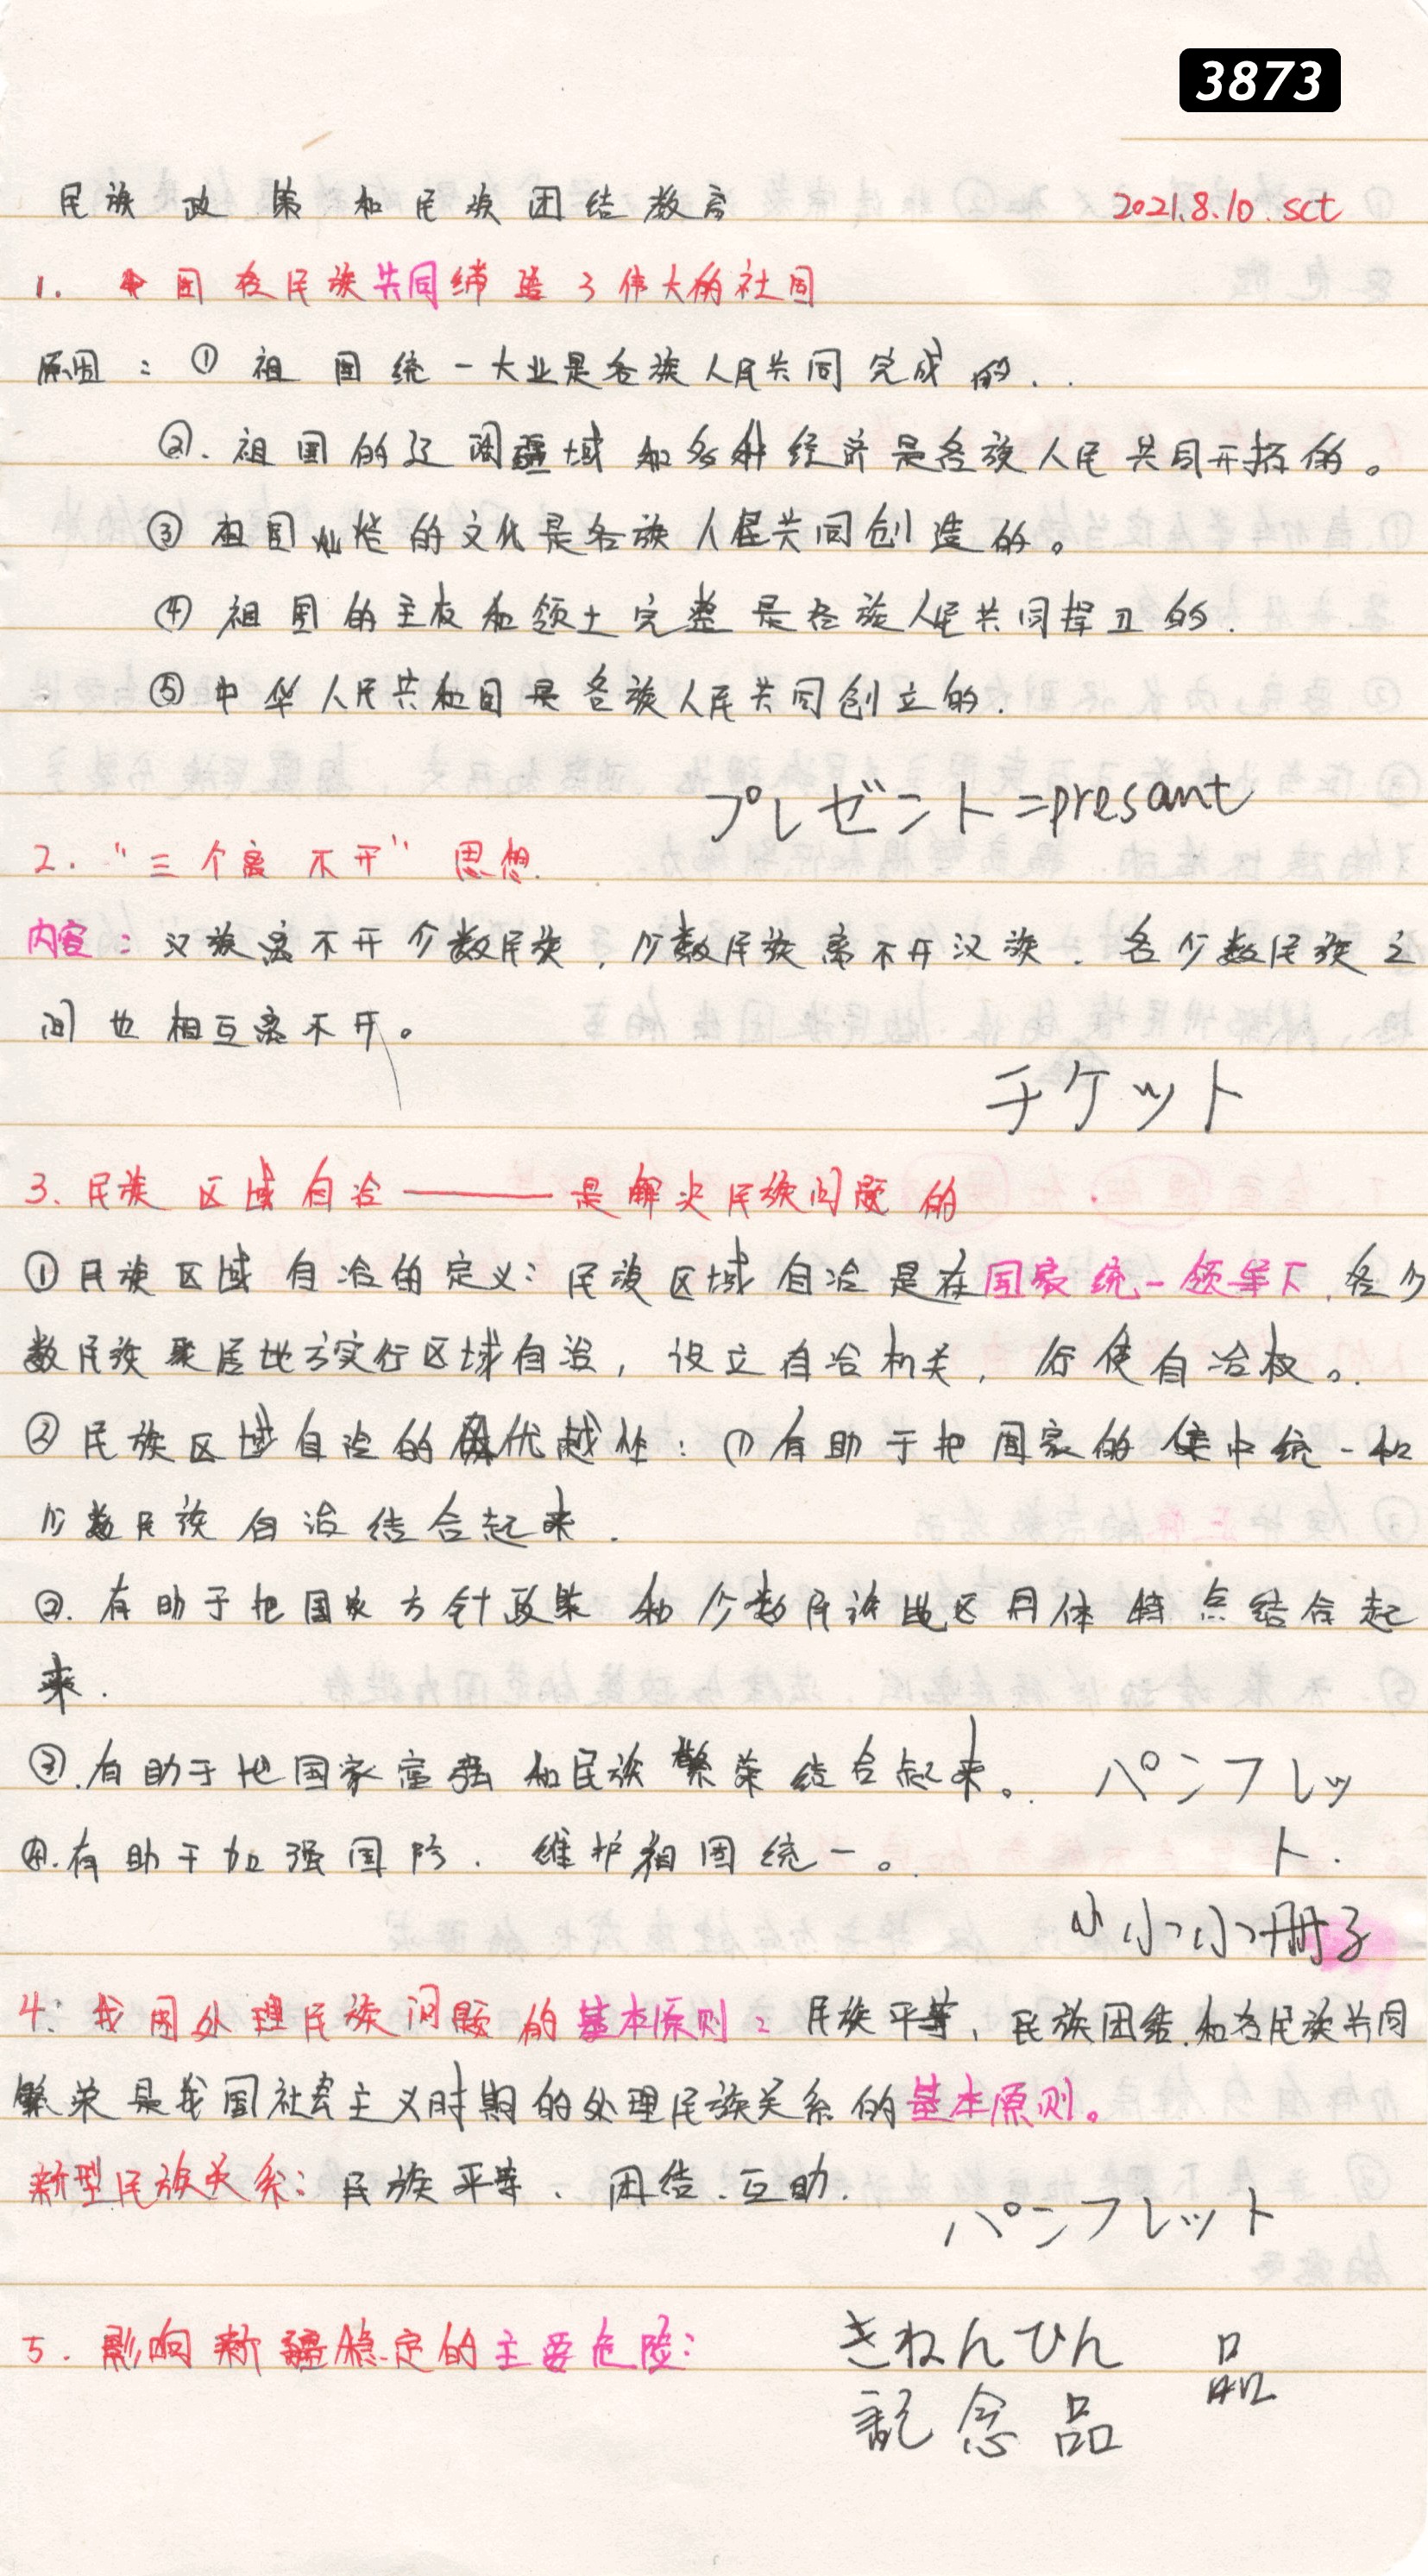 3873
民族政策和民族团结教育 2021.8.10.sct
1. 中国各民族共同缔造了伟大的社国
原因：① 祖国统一大业是各族人民共同完成的..
②. 祖国的辽阔疆域和各种经济是各族人民共同开拓的。
③ 祖国灿烂的文化是各族人民共同创造的。
④ 祖国的主权和领土完整是各族人民共同捍卫的.
⑤ 中华人民共和国是各族人民共同创立的.
プレゼント=presant
2. “三个离不开”思想.
内容：汉族离不开少数民族，少数民族离不开汉族．各少数民族之
间也相互离不开。
チケット
3. 民族区域自治——是解决民族问题的
①民族区域自治的定义：民族区域自治是在国家统一领导下，各少
数民族聚居地方实行区域自治，设立自治机关，行使自治权。.
② 民族区域自治的优越性：①有助于把国家的集中统一和
少数民族自治结合起来．
②. 有助于把国家方针政策和少数民族地区具体特点结合起
来．
③.有助于把国家富强和民族繁荣结合起来。. パンフレッ
④.有助于加强国防．维护祖国统一。. ト.
小小小冊子
4. 我国处理民族问题的基本原则：民族平等，民族团结，和各民族共同
繁荣是我国社会主义时期的处理民族关系的基本原则。
新型民族关系：民族平等、团结、互助．
パンフレット
5. 影响新疆稳定的主要危险： きねんひん 品
記念品